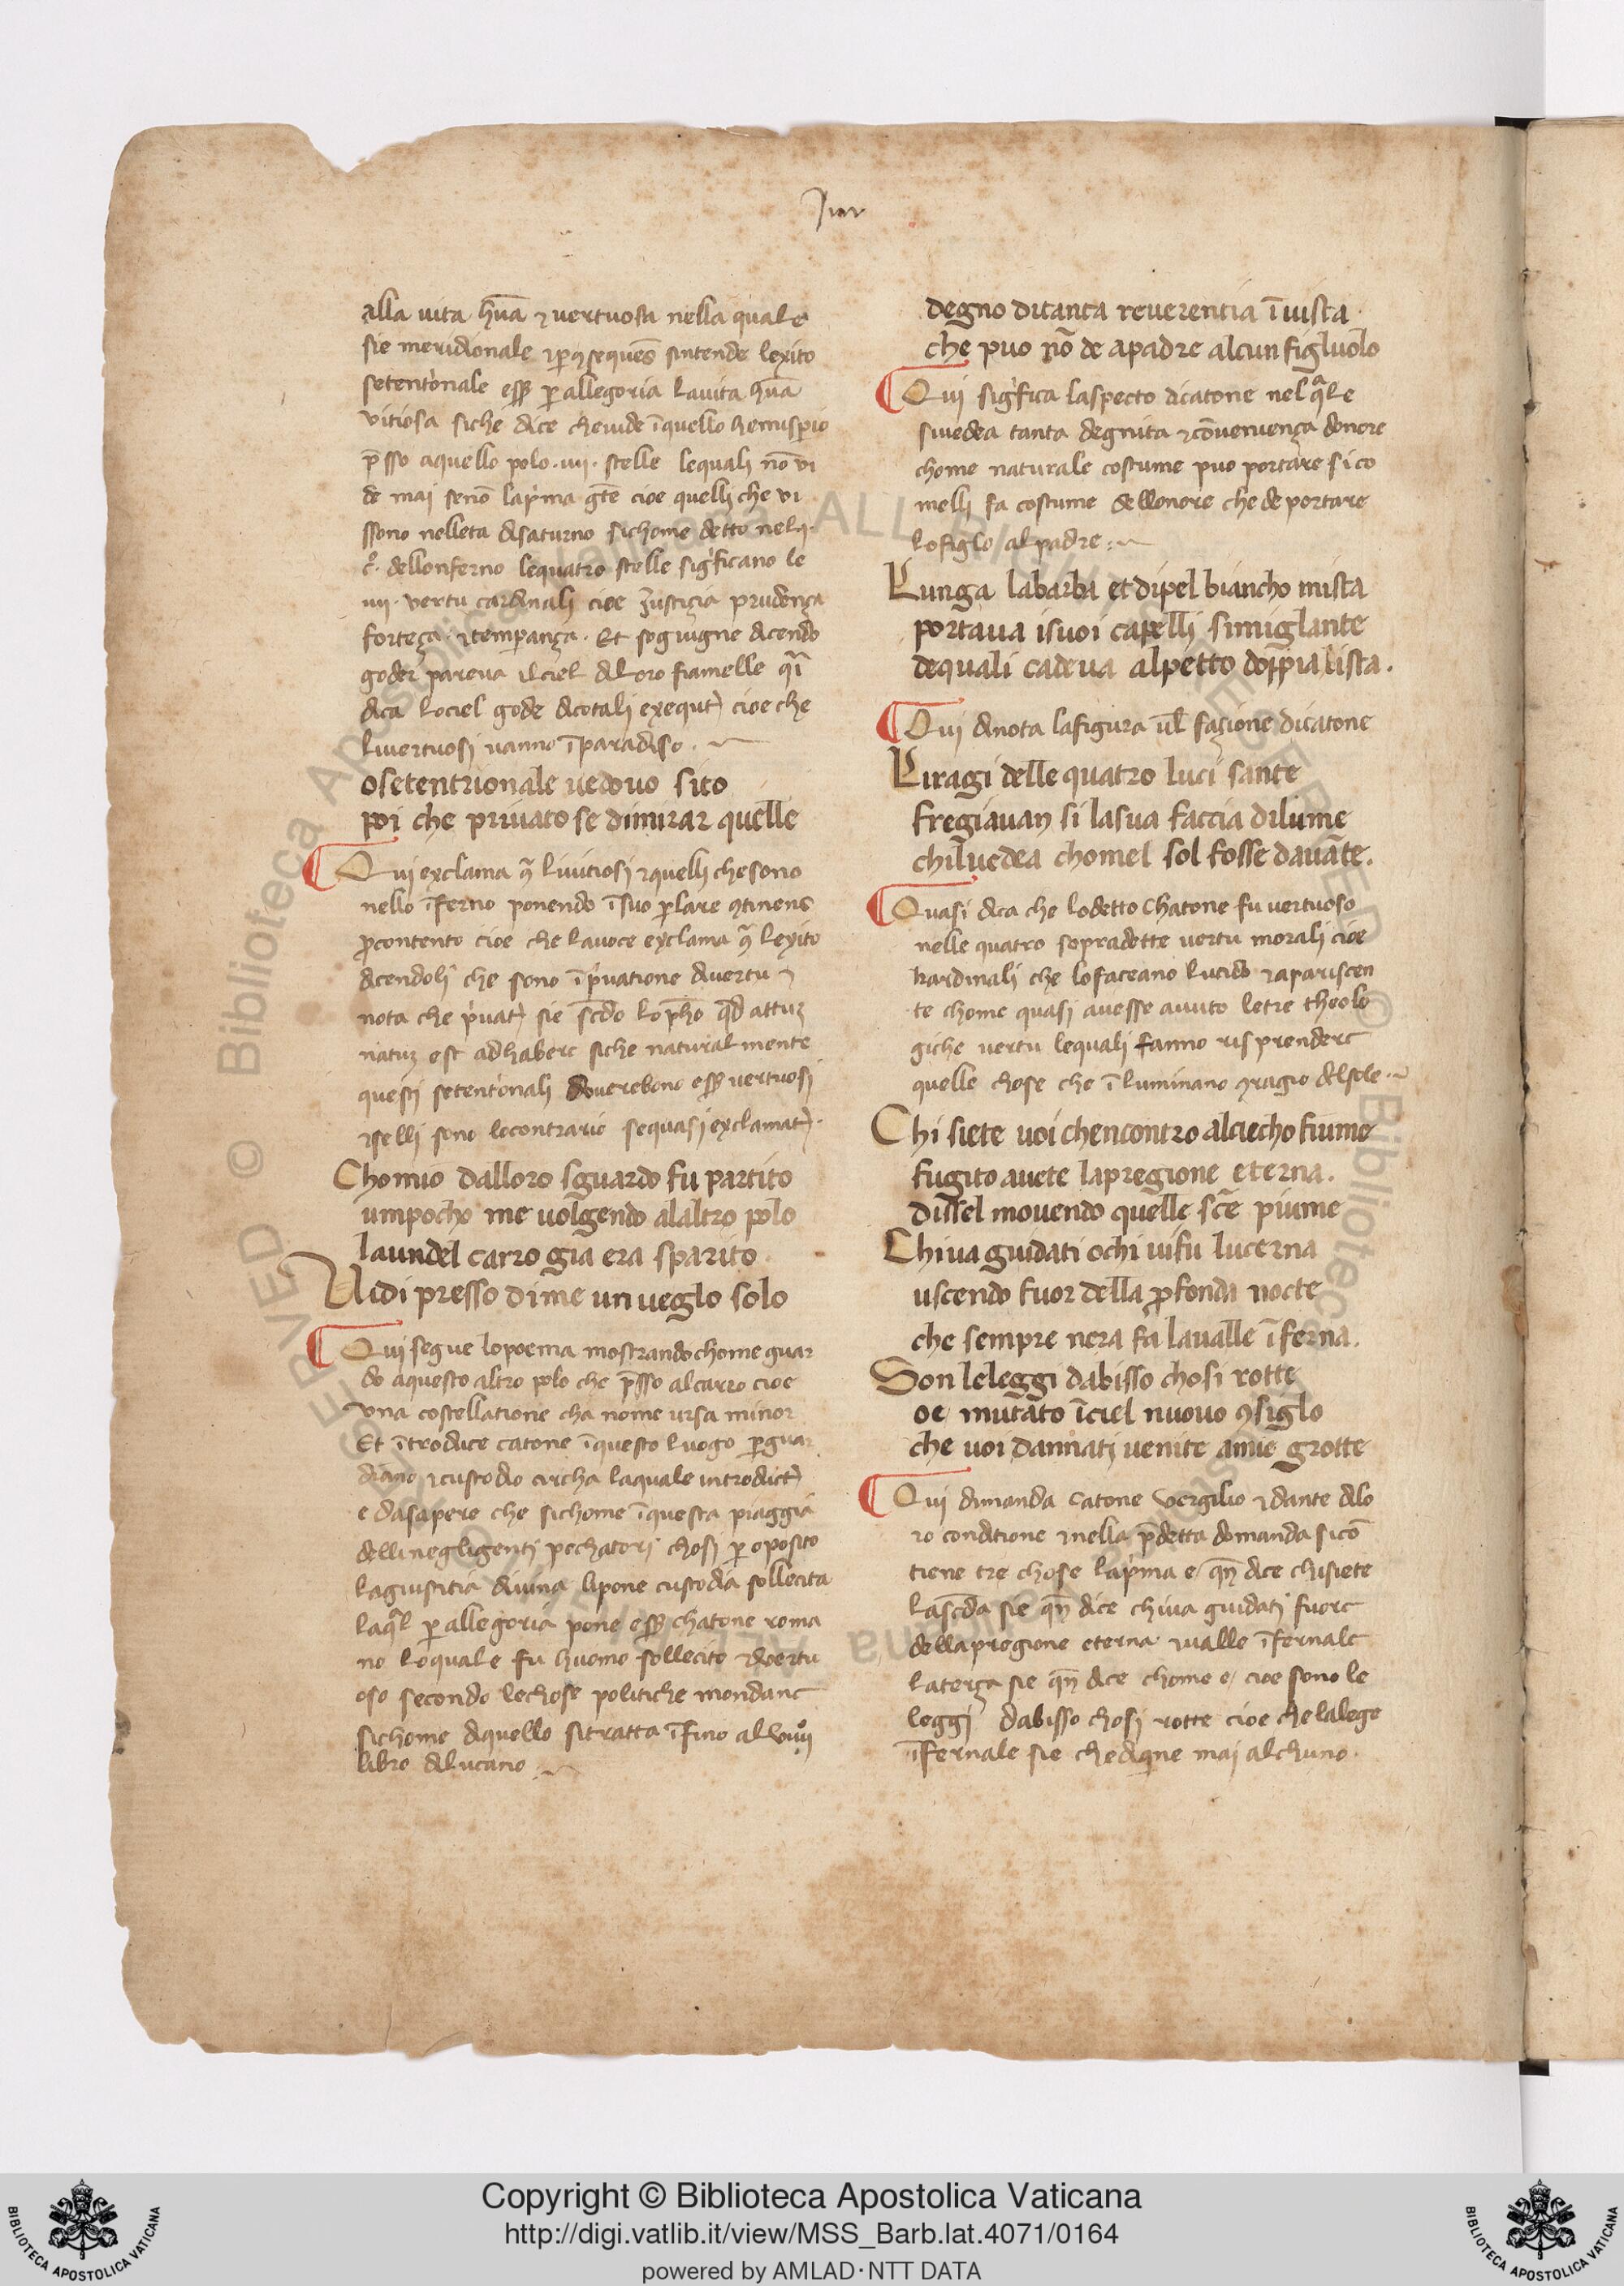 alla uita hūa ⁊ uertuosa nella quale
sie meridionale ⁊ ꝑꝯsequēs sintende lexito
setent'onale eẜẜ ꝑ allegoria lauita hūa
vitiosa siche dice cheuide īquello hemisperio
p̄sso aquello polo .iiii. stelle lequali nō ui
de mai senō lap'ma gēte cioe quelli che vi
ssono nelleta disaturno sichome detto nel
c̊. dellonferno lequatro stelle sig'ficano le
iiii. uertu cardinali cioe Justiçia prudença
forteça ⁊temperança. Et sogiugne dicendo
goder pareua ilciel diloro fiamelle q̄i
dica lociel gode dicotali exequt' cioe che
liuertuosi uanno īparadiso.
osetentrionale uedouo sito
poi che priuato se dimirar quelle
Qui exclama q̄ liuitiosi ⁊quelli chesono
nello īferno ponendo īsuo ꝑlare ꝯtinens
ꝓcontento cioe che lauoce exclama q̄ lexito
dicendoli che sono īp'uatione diuertu ⁊
nota che p'uat' sie sc̄do lopħo qd̄ attuꝫ
natuꝫ est adhabere siche naturalmente
questi setent'onali douerebono eẜẜ uertuosi
⁊selli sono locontrario sequasi exclamat'.
Chomio dalloro sguardo fu partito
umpocho me uolgendo alaltro polo
laundel carro gia era sparito.
Uidi presso dime un ueglo solo
Qui segue lopoema mostrandochome guar
do aquesto altro polo che p̄sso alcarro cioe
vna costellatione cha nome ursa minor
Et ītroduce catone īquesto luogo ꝑguar
diano ⁊custodio circha laquale introduct'
e dasapere che sichome īquesta piaggia
dellinegligenti pechatori chosi ꝑ oposito
lagiustitia diuina lipone custodia sollecita
laq̄l ꝑ allegoria pone eẜẜ chatone roma
no loquale fu huomo sollecito ⁊uertu
oso secondo lechose politiche mondane
sichome diquello sitratta īfino al
libro dilucano.
degno ditanta reuerentia īuista.
che puo nō de apadre alcun figluolo
Qui sig'fica laspecto dicatone nelq̄le
siuedea tanta degnita ⁊cōueniença donore
chome naturale costume puo portare sico
melli fa costume dellonore che de portare
lofiglo alpadre.
Lunga labarba et dipel biancho mista
portaua isuoi capelli simiglante
dequali cadeua alpetto doppia lista.
Qui dinota lafigura ul̄ façione dicatone
Liragi delle quatro luci sante
fregiauan si lasua faccia dilume
chil uedea chomel sol fosse dauāte.
Quasi dica che lodetto Chatone fu uertuoso
nelle quatro sopradette uertu morali cioe
kardinali che lofaceano lucido ⁊apariscen
te chome quasi auesse auuto letre theolo
giche uertu lequali fanno risprendere
quelle chose che īluminano ꝯragio delsole.
Chi siete uoi chencontro alciecho fiume
fugito auete lapregione eterna.
dissel mouendo quelle sc̄e piume
Chiua guidati ochi uifu lucerna
uscendo fuor della ꝓfonda nocte
che sempre nera fa laualle īferna.
Son leleggi dabisso chosi rotte
oe mutāto īciel nuouo ꝯsiglo
che uoi dannati uenite amie grotte
Qui dimanda catone Vergilio ⁊dante dilo
ro conditione ⁊nella p̄detta domanda sicō
tiene tre chose lap'ma e qn̄ dice chisiete
lasc̄da sie qn̄ dice chiua guidati fuore
dellapregione eterna ⁊ualle īfernale
laterça sie qn̄ dice chome e cioe sono le
leggi dabisso chosi rotte cioe che lalege
īfernale sie che mai alchuno.
Copyright © Biblioteca Apostolica Vaticana
http://digi.vatlib.it/view/MSS_Barb.lat.4071/0164
powered by AMLAD·NTT DATA
BIBLIOTECA APOSTOLICA VATICANA
BIBLIOTECA APOSTOLICA VATICANA